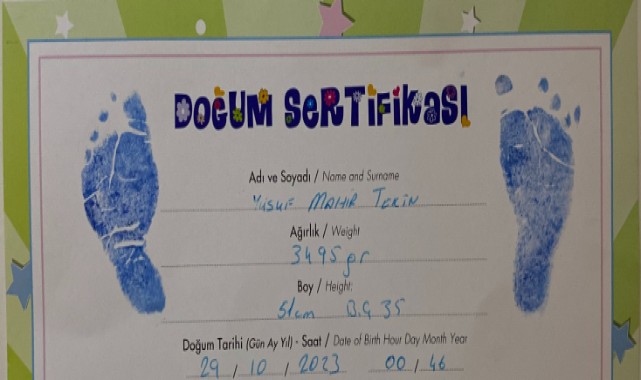 DOĞUM SERTİFİKASI
Adı ve Soyadı / Name and Surname
Yusuf MAHİR TEKİN
Ağırlık / Weight
3495 gr
Boy / Height:
51cm B.Ç 35
Doğum Tarihi (Gün Ay Yıl) - Saat / Date of Birth Hour Day Month Year
29 / 10 / 2023 00 / 46